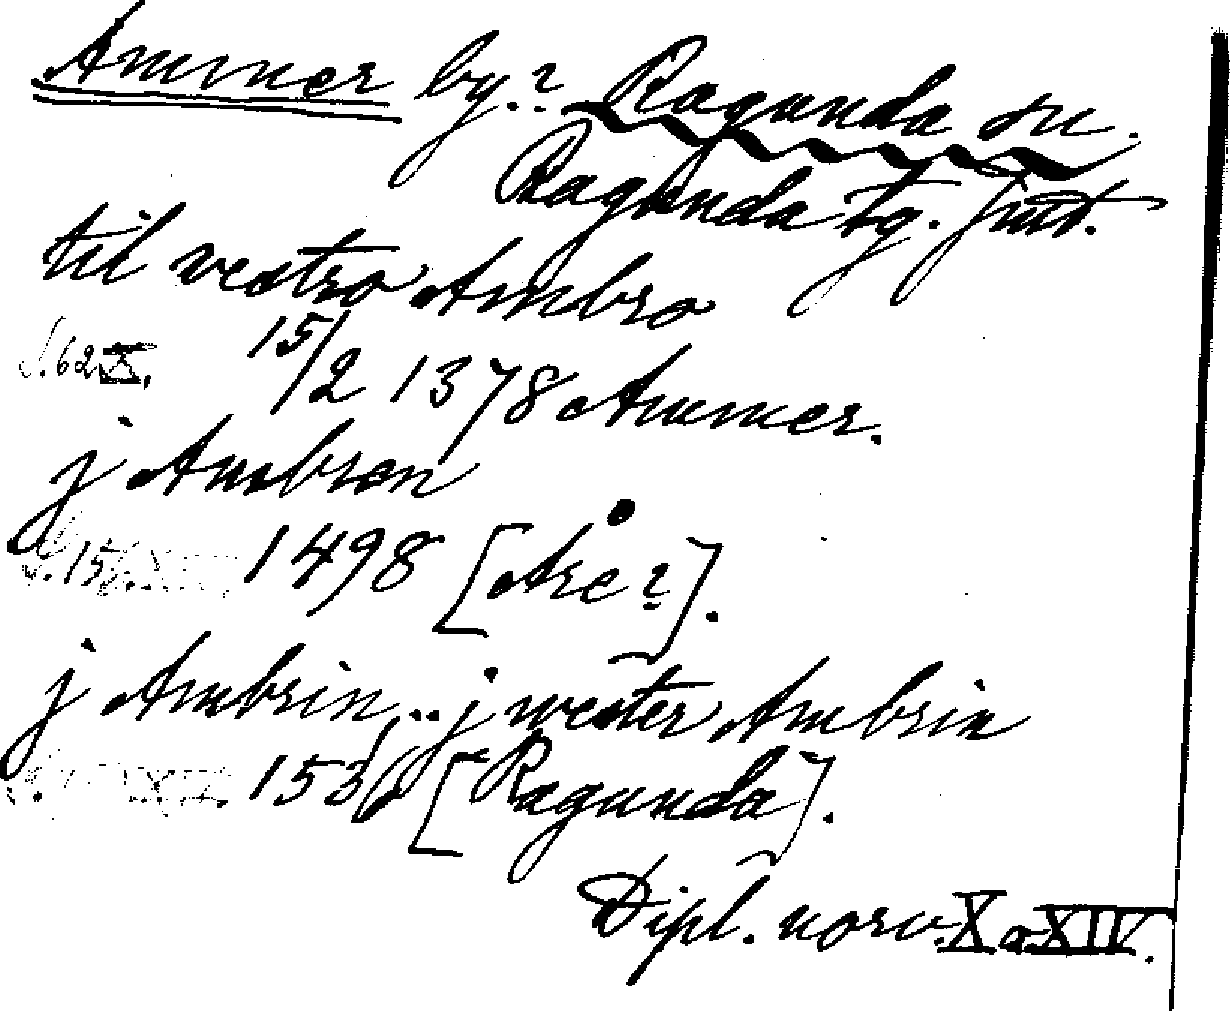 Ammer by.? Ragunda sn.
Ragunda tg. Jmt.
til vestro Ambro
s. 62 X. 15/2 1378 Ammer.
j Ambron
s. 151 1498 [Åre?].
j Ambrin .. j wester Ambrin
1536 [Ragunda].
Dipl. norv. X o XIV.